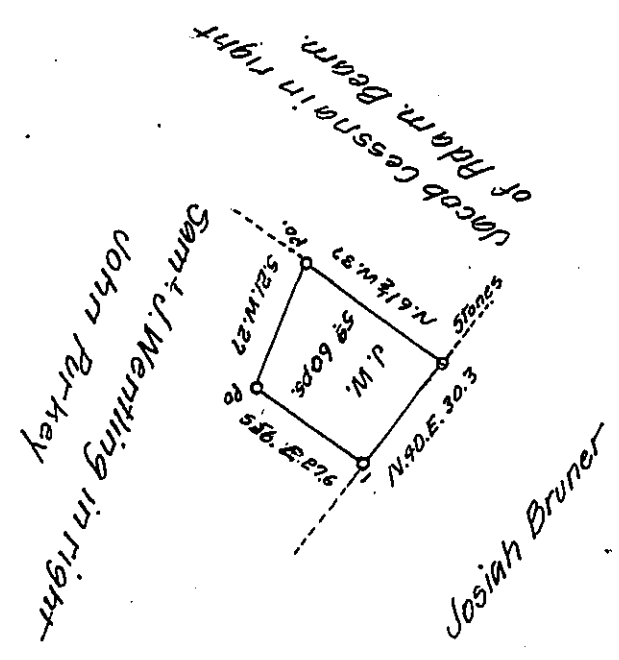 Jacob Cessna in right
of Adam. Beam.
Sam.t J. Wentling in right
John Purkey
Po.
N.61½W.37
Stones
S.21.W.27
J. W.
59. 60ps.
Po
S56.E.27.6
N.40.E.30.3
Josiah Bruner